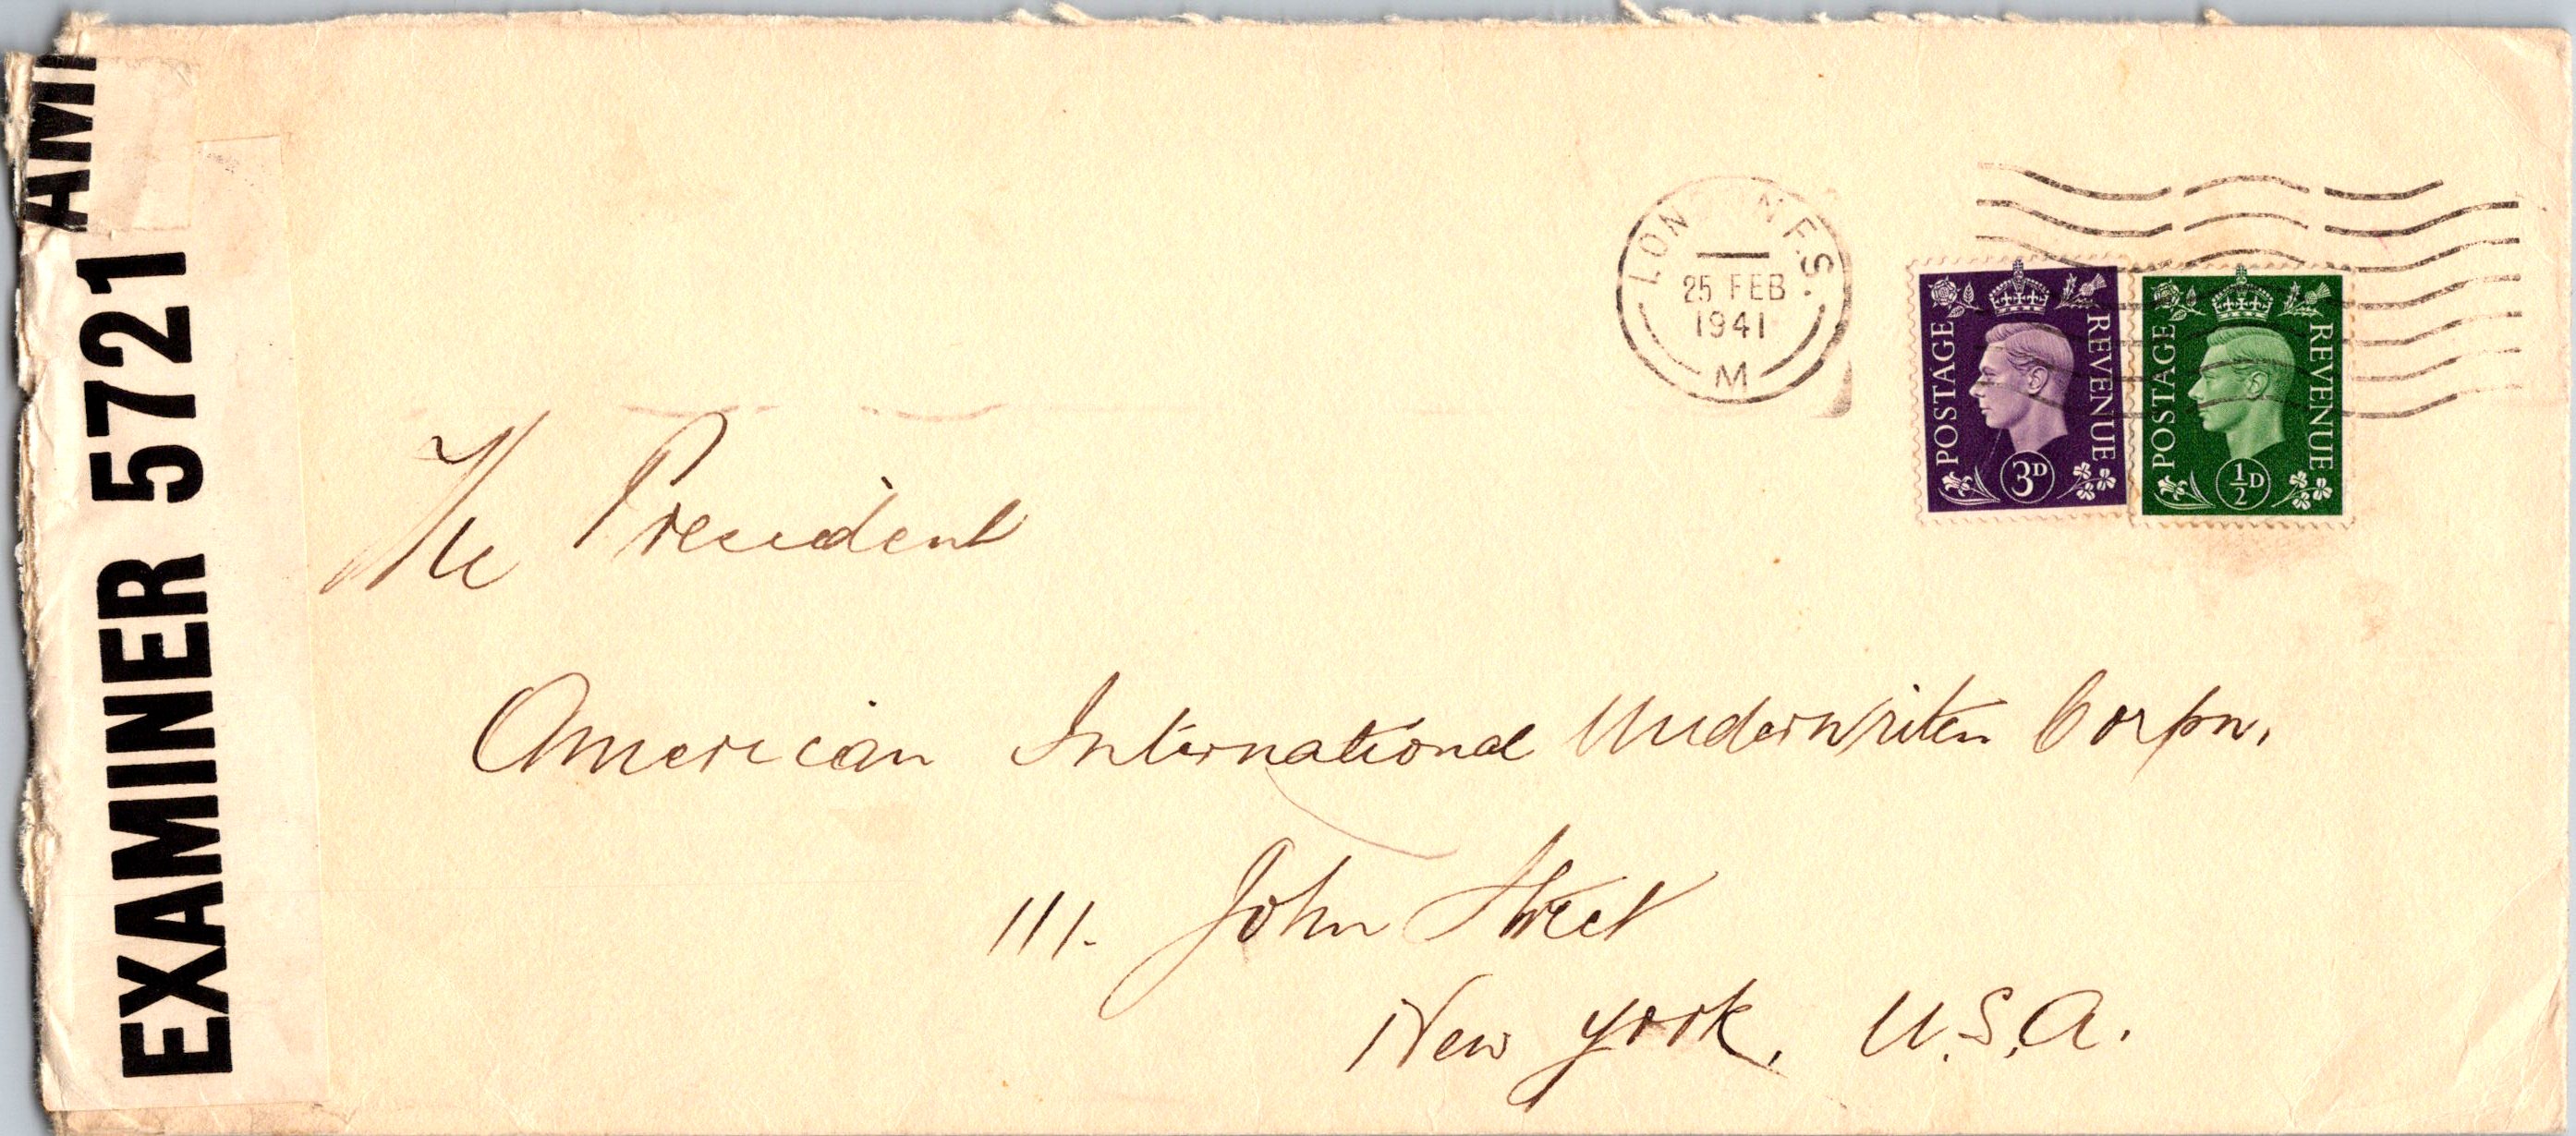 AMI
EXAMINER 5721
LON N F.S.
25 FEB
1941
M
POSTAGE REVENUE
3D
POSTAGE REVENUE
½D
The President
American International Underwriters Corpn.
111. John Street
New York, U.S.A.